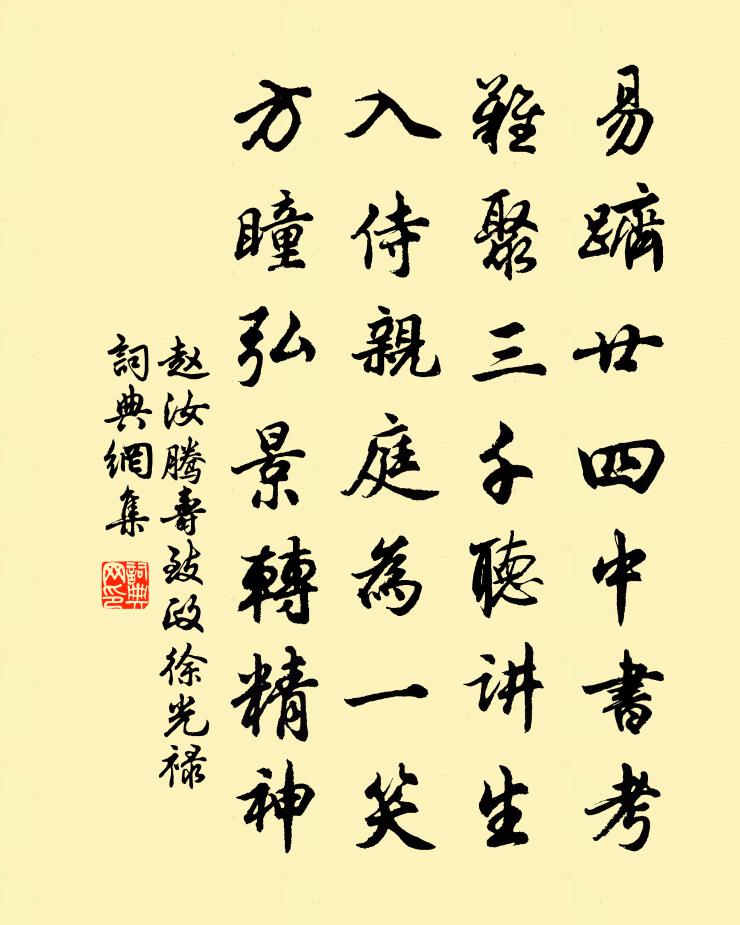 易躋廿四中書考
難聚三千聽讲生
入侍親庭為一笑
方瞳弘景轉精神
赵汝騰壽致政徐光禄
詞典網集
詞典网印